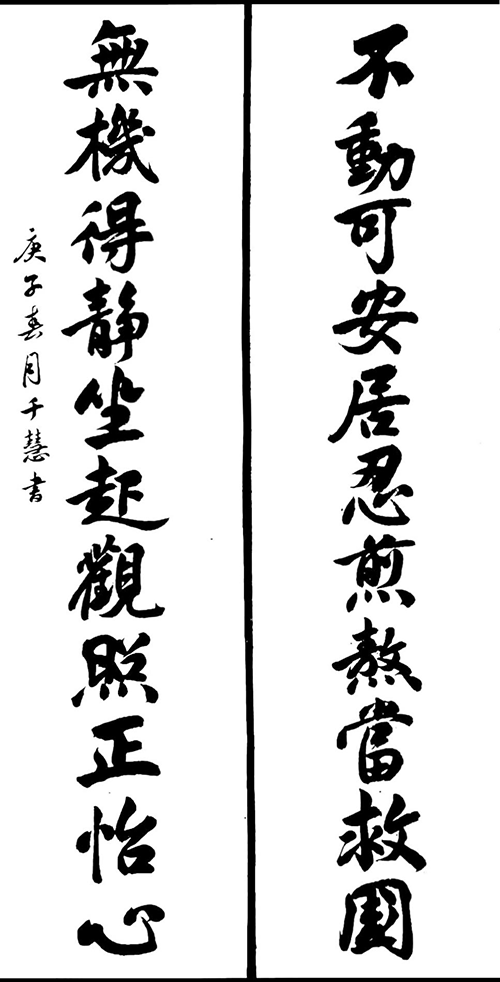 不動可安居忍煎熬當救國
無機得静坐起觀照正怡心
庚子春月千慧書